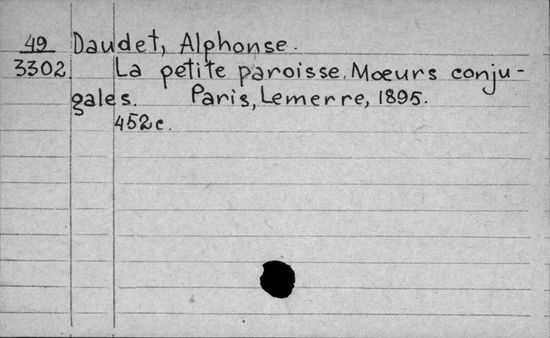 49 Daudet, Alphonse.
3302 La petite paroisse. Mœurs conju-
gales. Paris, Lemerre, 1895.
452c.